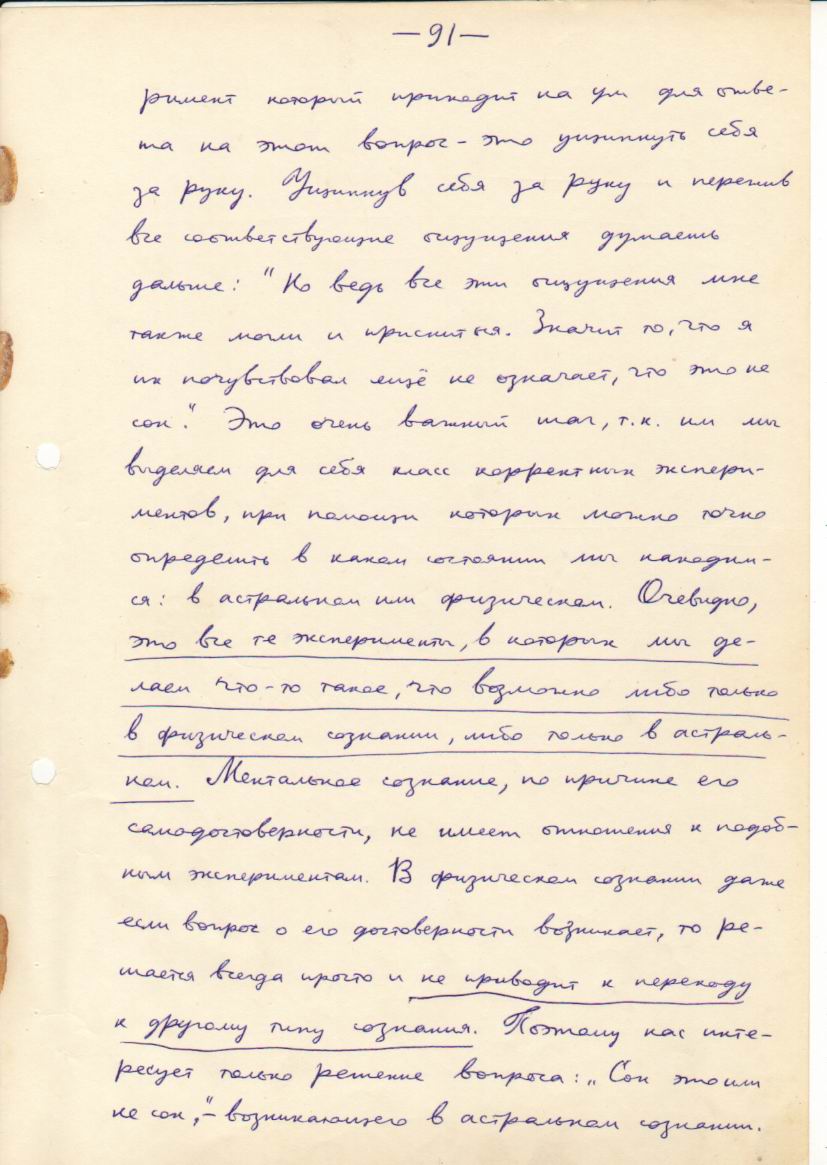 — 91 —
римент который приходит на ум для отве-
та на этот вопрос - это ущипнуть себя
за руку. Ущипнув себя за руку и пережив
все соответствующие ощущения думаешь
дальше: "Но ведь все эти ощущения мне
также могли и присниться. Значит то, что я
их почувствовал ещё не означает, что это не
сон". Это очень важный шаг, т.к. им мы
выделяем для себя класс корректных экспери-
ментов, при помощи которых можно точно
определить в каком состоянии мы находим-
ся: в астральном или физическом. Очевидно,
это все те эксперименты, в которых мы де-
лаем что-то такое, что возможно либо только
в физическом сознании, либо только в астраль-
ном. Ментальное сознание, по причине его
самодостоверности, не имеет отношения к подоб-
ным экспериментам. В физическом сознании даже
если вопрос о его достоверности возникает, то ре-
шается всегда просто и не приводит к переходу
к другому типу сознания. Поэтому нас инте-
ресует только решение вопроса: „Сон это или
не сон", - возникающего в астральном сознании.